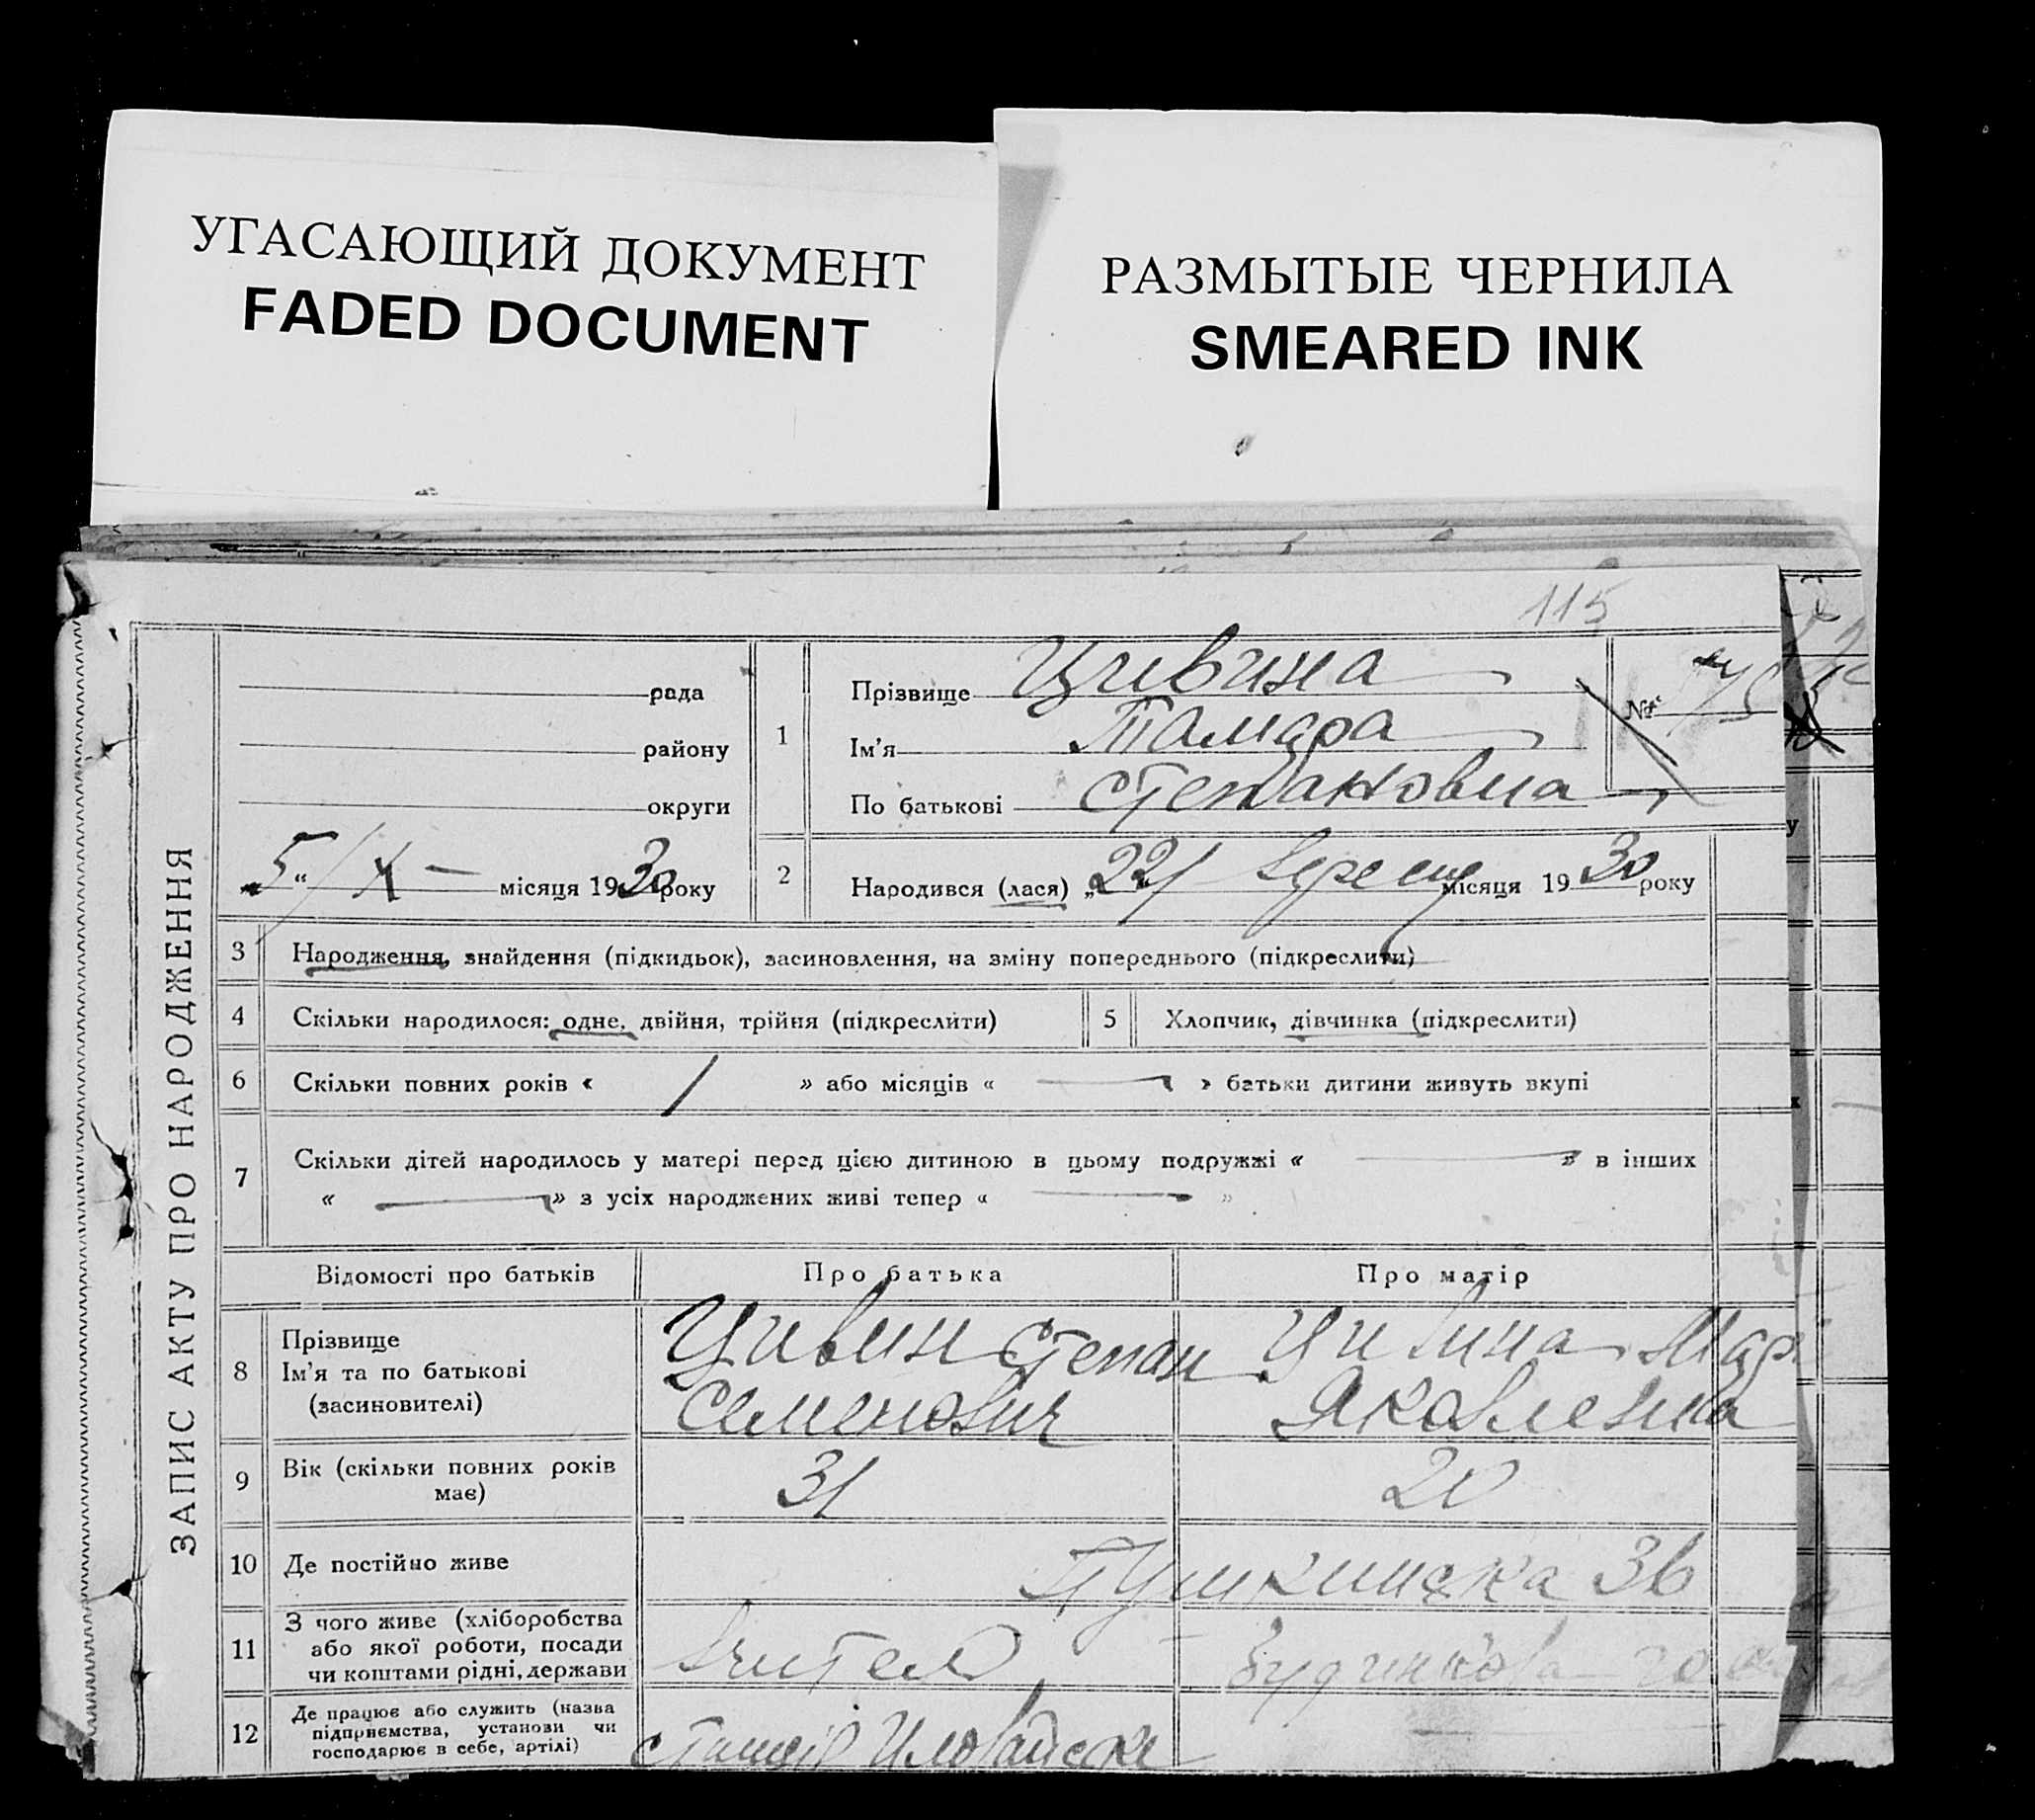 УГАСАЮЩИЙ ДОКУМЕНТ
FADED DOCUMENT
РАЗМЫТЫЕ ЧЕРНИЛА
SMEARED INK
115
ЗАПИС АКТУ ПРО НАРОДЖЕННЯ
рада
району
округи
„5“/X — місяця 1930 року
1
Прізвище Цивина
Ім'я Тамара
По батькові Степановна
№
2
Народився (лася) „22“ вересня місяця 1930 року
3 Народження, знайдення (підкидьок), засиновлення, на зміну попереднього (підкреслити)
4 Скільки народилося: одне, двійня, трійня (підкреслити)
5 Хлопчик, дівчинка (підкреслити)
6 Скільки повних років « 1 » або місяців « — » батьки дитини живуть вкупі
7 Скільки дітей народилось у матері перед цією дитиною в цьому подружжі « — » в інших
« — » з усіх народжених живі тепер « — »
Відомості про батьків Про батька Про матір
8 Прізвище
Ім'я та по батькові
(засиновителі)
Цивин Степан
Семенович
Цивина Марі
Яковлевна
9 Вік (скільки повних років
має)
31 20
10 Де постійно живе Пушкинска 36
11 З чого живе (хліборобства
або якої роботи, посади
чи коштами рідні, держави
Вчитель
12 Де працює або служить (назва
підприємства, установи чи
господарює в себе, артілі)
Иловайске